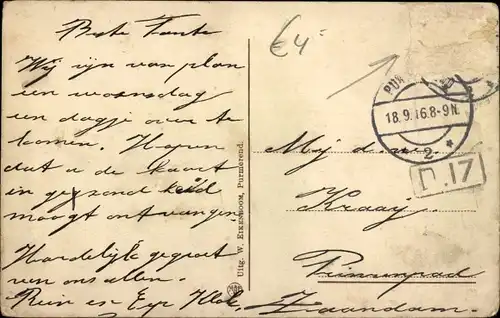 Beste Tante
Wij zijn van plan
een woensdag
een dagje over te
komen. Hopen
dat u de kaart
in gezondheid
moogt ontvangen
Hartelijk gegroet
van ons allen.
Rein en
€4-
PUR
18.9.16.8-9N.
2 *
D.17
Mej d.
Kraaij
Zaandam.
Uitg. W. EIKENBOOM, Purmerend.